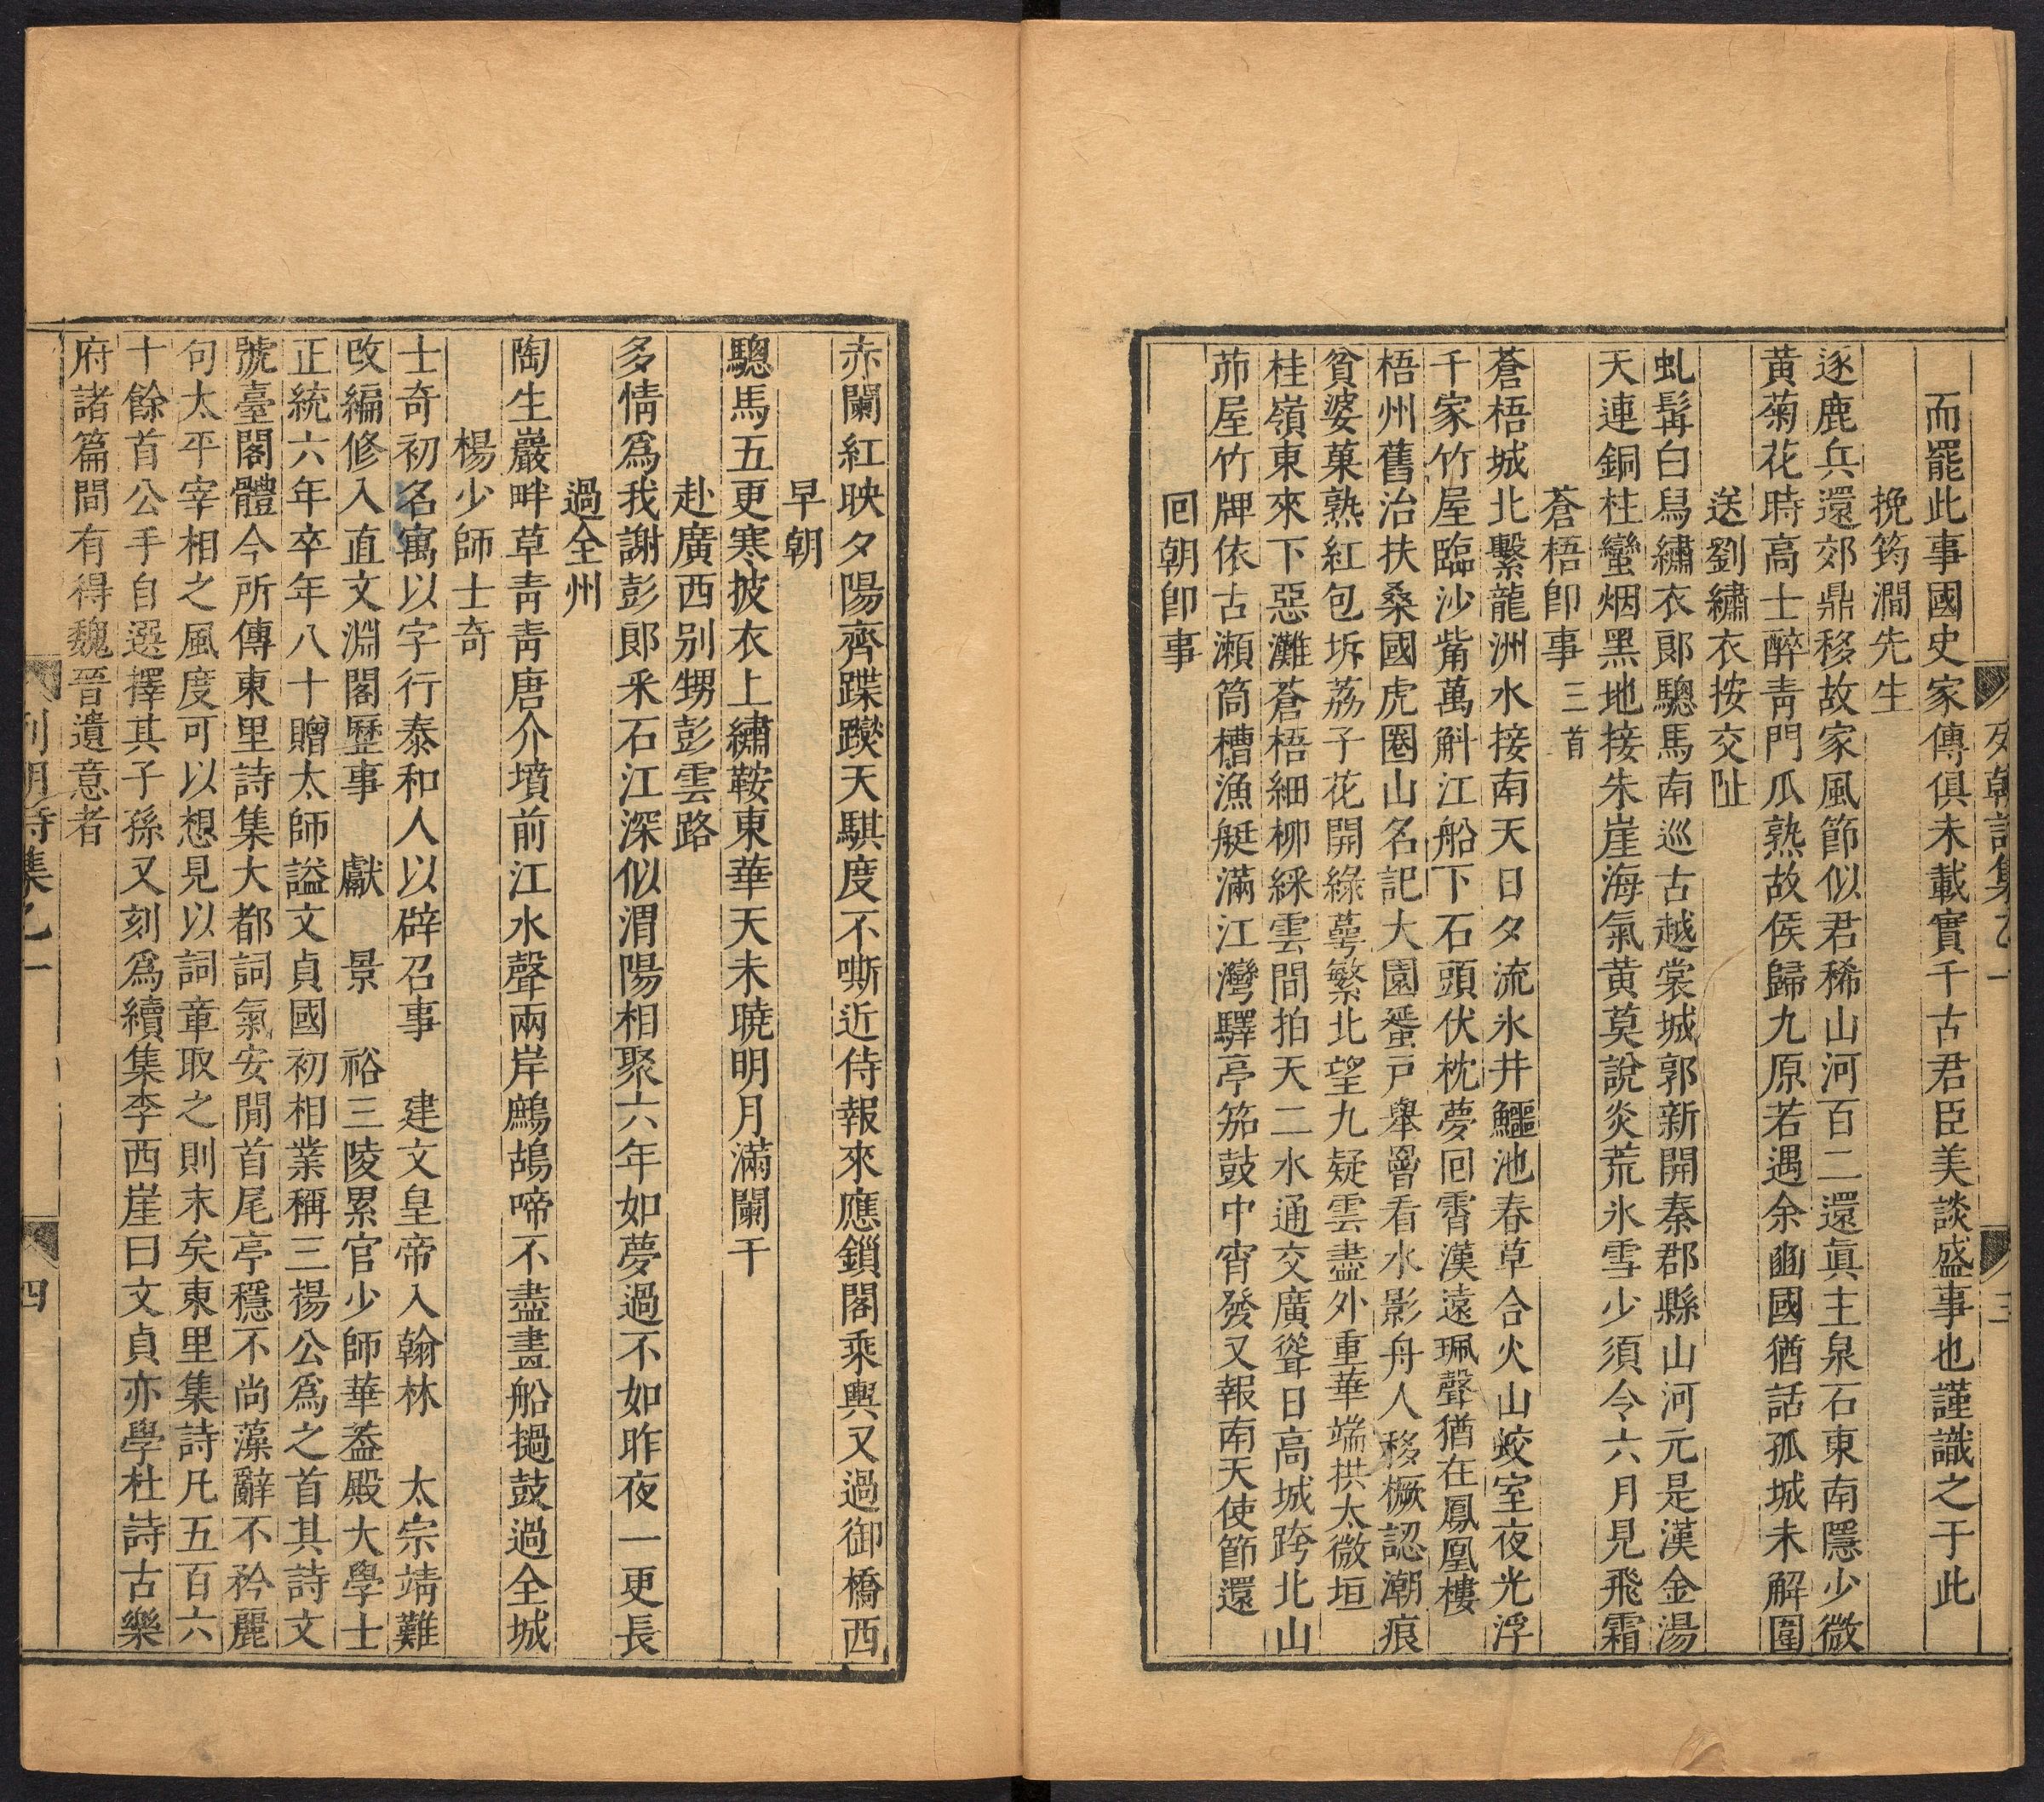 列朝詩集乙一
三
而罷此事國史家傳俱未載實千古君臣美談盛事也謹識之于此
挽筠澗先生
逐鹿兵還郊鼎移故家風節似君稀山河百二還眞主泉石東南隱少微
黃菊花時高士醉青門瓜熟故侯歸九原若遇余豳國猶話孤城未解圍
送劉繡衣按交阯
虬髯白舄繡衣郎驄馬南巡古越裳城郭新開秦郡縣山河元是漢金湯
天連銅柱蠻烟黑地接朱崖海氣黃莫說炎荒氷雪少須令六月見飛霜
蒼梧卽事三首
蒼梧城北繫龍洲水接南天日夕流氷井鱷池春草合火山蛟室夜光浮
千家竹屋臨沙觜萬斛江船下石頭伏枕夢囘霄漢遠珮聲猶在鳳凰樓
梧州舊治扶桑國虎圈山名記大園蜑戸舉罾看水影舟人移橛認潮痕
貧婆菓熟紅包坼荔子花開綠萼繁北望九疑雲盡外重華端拱太微垣
桂嶺東來下惡灘蒼梧細柳綵雲間拍天二水通交廣聳日高城跨北山
茆屋竹牌依古瀨筒槽漁艇滿江灣驛亭笳鼓中宵發又報南天使節還
囘朝卽事
赤闌紅映夕陽齊蹀躞天騏度不嘶近侍報來應鎖閣乘輿又過御橋西
早朝
驄馬五更寒披衣上繡鞍東華天未曉明月滿闌干
赴廣西別甥彭雲路
多情爲我謝彭郎釆石江深似渭陽相聚六年如夢過不如昨夜一更長
過全州
陶生巖畔草靑靑唐介墳前江水聲兩岸鷓鴣啼不盡畫船撾鼓過全城
楊少師士奇
士奇初名寓以字行泰和人以辟召事　建文皇帝入翰林　太宗靖難
改編修入直文淵閣歷事　獻　景　裕三陵累官少師華葢殿大學士
正統六年卒年八十贈太師謚文貞國初相業稱三揚公爲之首其詩文
號臺閣體今所傳東里詩集大都詞氣安閒首尾亭穩不尚藻辭不矜麗
句太平宰相之風度可以想見以詞章取之則末矣東里集詩凡五百六
十餘首公手自選擇其子孫又刻爲續集李西崖曰文貞亦學杜詩古樂
府諸篇間有得魏晉遺意者
列朝詩集乙一
四